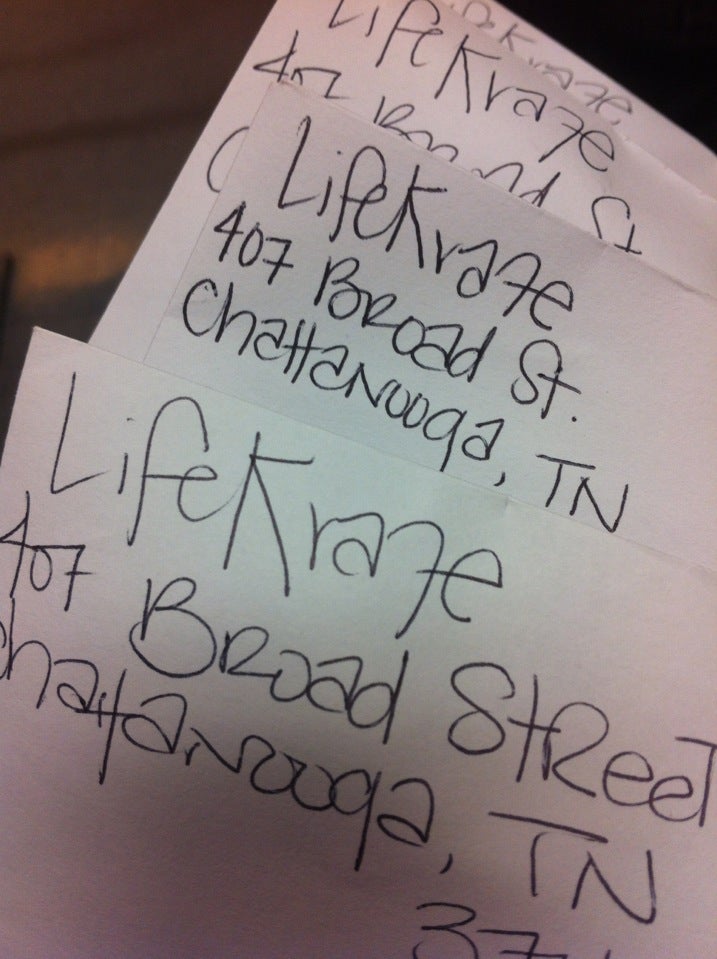 LifeKraze
LifeKraze
407 Broad St
LifeKraze
407 Broad St.
Chattanooga, TN
LifeKraze
407 Broad Street
Chattanooga, TN
37